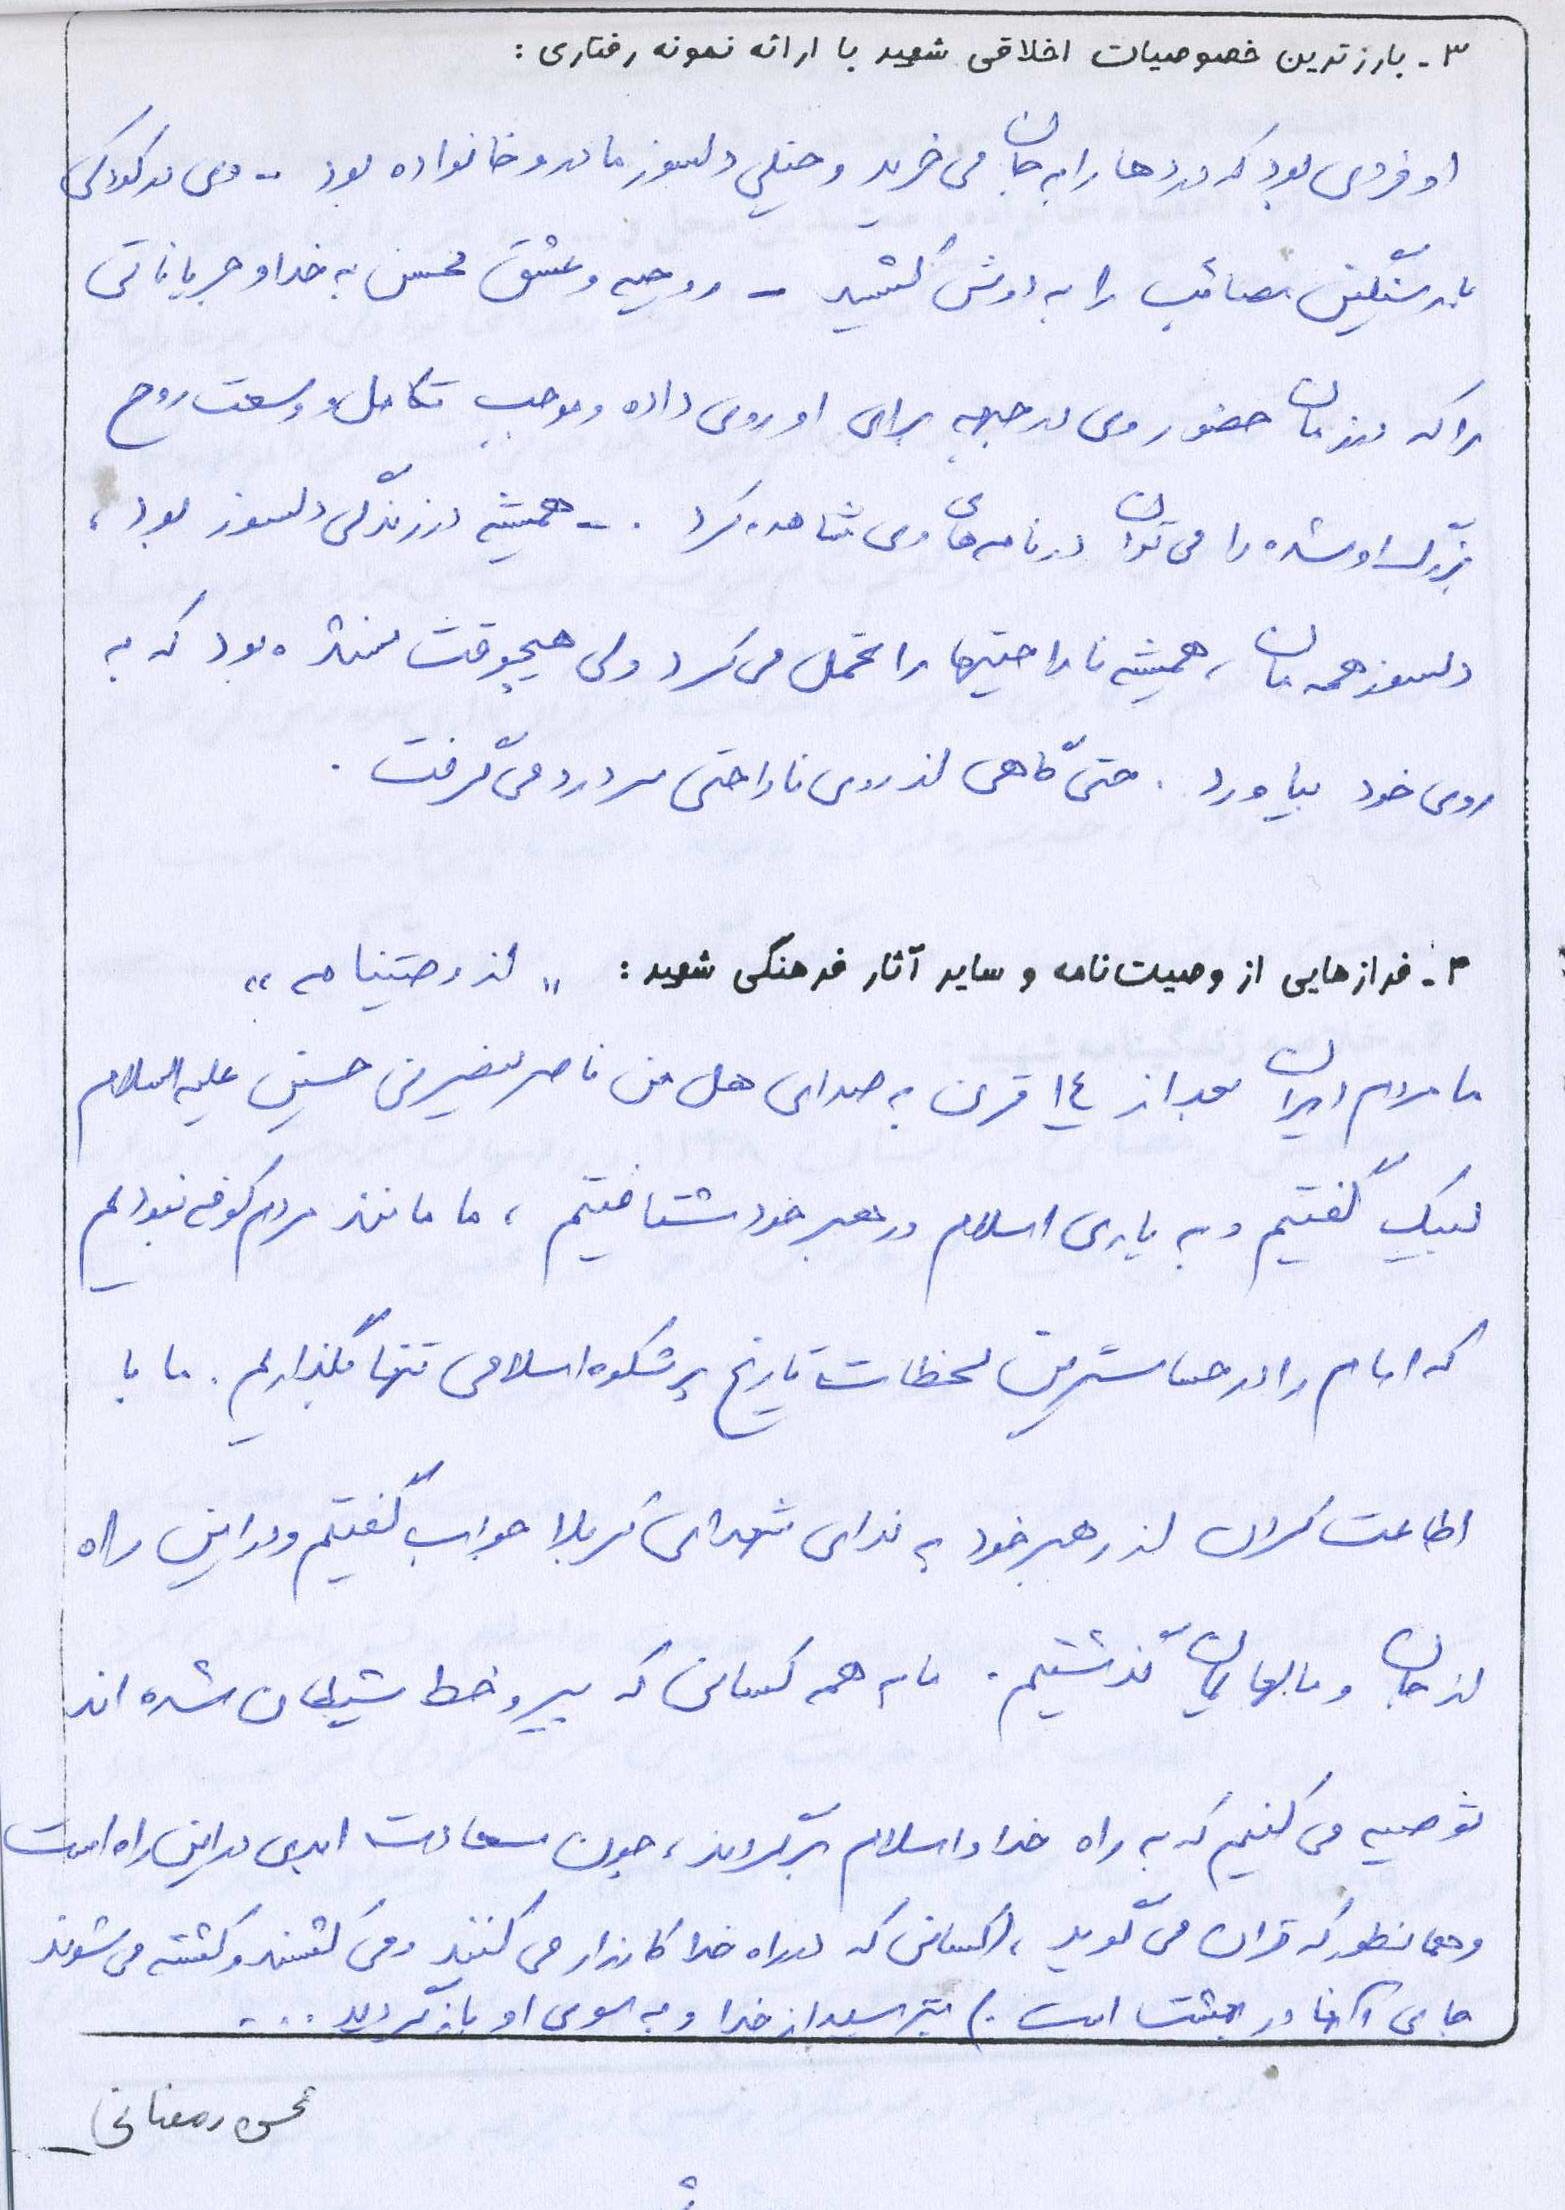 ۳- بارزترین خصوصیات اخلاقی شهید با ارائه نمونه رفتاری :
او فردی بود که دردها را به جان می خرید و خیلی دلسوز مادر و خانواده بود - وی در کودکی
بار سنگین مصائب را به دوش کشید - روحیه و عشق محسن به خدا و جریاناتی
را که در زمان حضور وی در جبهه برای او روی داده و موجب تکامل و وسعت روح
بزرگ او شده را می توان در نامه های وی مشاهده کرد . - همیشه در زندگی دلسوز بود ،
دلسوز همه مان ، همیشه ناراحتیها را تحمل می کرد ولی هیچوقت نشده بود که به
روی خود بیاورد . حتی گاهی از روی ناراحتی سردرد می گرفت .
۴- فرازهایی از وصیت نامه و سایر آثار فرهنگی شهید : " از وصیتنامه "
ما مردم ایران بعد از ۱٤ قرن به صدای هل من ناصر ینصرنی حسین علیه السلام
لبیک گفتیم و به یاری اسلام و رهبر خود شتافتیم ، ما مانند مردم کوفه نبودیم
که امام را در حساسترین لحظات تاریخ پرشکوه اسلامی تنها بگذاریم . ما با
اطاعت کردن از رهبر خود به ندای شهدای کربلا جواب گفتیم و در این راه
از جان و مالهایمان گذشتیم . ما به همه کسانی که پیرو خط شیطان شده اند
توصیه می کنیم که به راه خدا و اسلام برگردند ، چون سعادت ابدی در این راه است
و همانطور که قرآن می گوید ، (کسانی که در راه خدا کارزار می کنند و می کشند و کشته می شوند
جای آنها در بهشت است .) بترسید از خدا و به سوی او بازگردید ....
محسن رمضانی